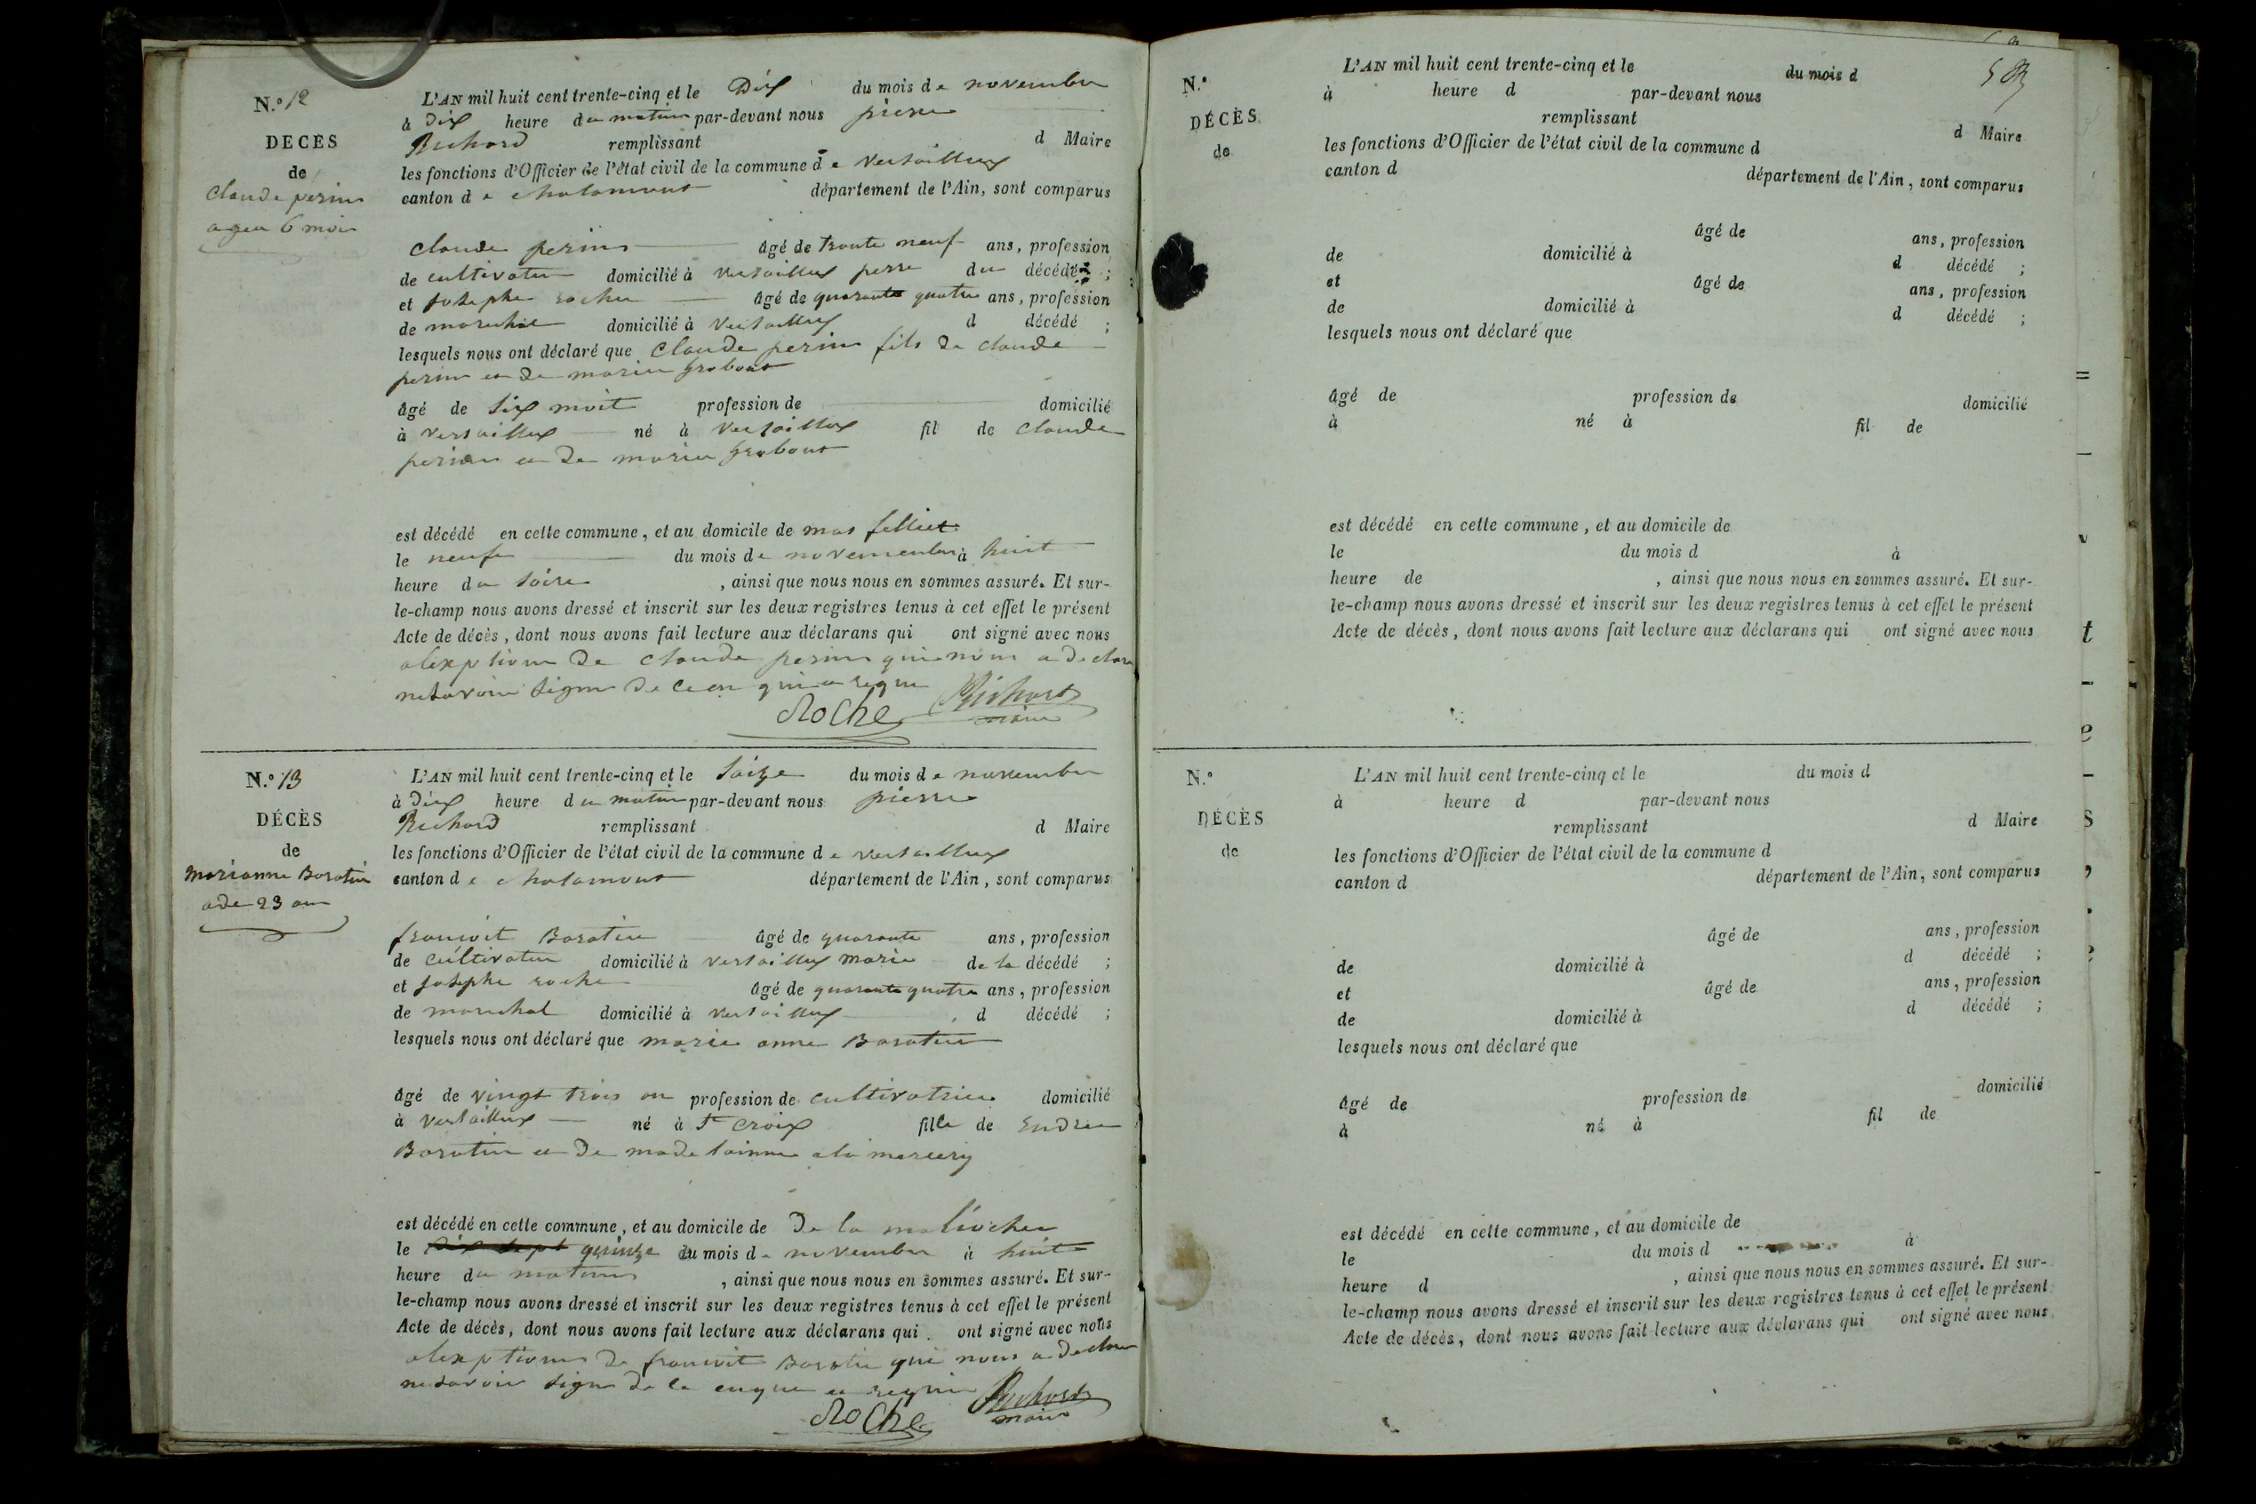 N.° 12
DECÈS
de
Claude perin
agea 6 mois
L'AN mil huit cent trente-cinq et le Dix du mois de novembre
à Dix heure du matin par-devant nous pierre
Richard remplissant d Maire
les fonctions d'Officier de l'état civil de la commune de versailleux
canton de chalamont département de l'Ain, sont comparus
claude perin âgé de trante neuf ans, profession
de cultivateur domicilié à versailleux perre du décédé ;
et Josephe roche âgé de quarante quatre ans, profession
de marechal domicilié à versailleux d décédé ;
lesquels nous ont déclaré que Claude perin fils de claude
perin et de marie grobont
âgé de six moit profession de domicilié
à versailleux né à versailleux fil de claude
perin et de marie grobont
est décédé en cette commune, et au domicile de mas felliet
le neuf du mois de novembre à huit
heure du soire , ainsi que nous nous en sommes assuré. Et sur-
le-champ nous avons dressé et inscrit sur les deux registres tenus à cet effet le présent
Acte de décès, dont nous avons fait lecture aux déclarans qui ont signé avec nous
alexption de claude perin qui nous a declare
ne savoir signer de ce en qui a reque
Roche Richard
maire
N.° 13
DÉCÈS
de
marianne Baratin
ade 23 an
L'AN mil huit cent trente-cinq et le saize du mois de novembre
à Dix heure du matin par-devant nous pierre
Richard remplissant d Maire
les fonctions d'Officier de l'état civil de la commune de versailleux
canton de chalamont département de l'Ain, sont comparus
francoit Baratin âgé de quarante ans, profession
de cultivateur domicilié à versailleux marie de la décédé ;
et Josephe roche âgé de quarante quatre ans, profession
de marechal domicilié à versailleux d décédé ;
lesquels nous ont déclaré que marie anne Baratin
âgé de vingt trois an profession de cultivatrice domicilié
à versailleux né à St croix fille de Endree
Baratin et de madelainne mercery
est décédé en cette commune, et au domicile de De la
le dix sept quinze du mois de novembre à huit
heure du matin , ainsi que nous nous en sommes assuré. Et sur-
le-champ nous avons dressé et inscrit sur les deux registres tenus à cet effet le présent
Acte de décès, dont nous avons fait lecture aux déclarans qui ont signé avec nous
alexption de francoit Baratin qui nous a declare
ne savoir signer de ce enque a requi
Roche Richard
maire
N.°
DÉCÈS
de
L'AN mil huit cent trente-cinq et le du mois d
à heure d par-devant nous
remplissant d Maire
les fonctions d'Officier de l'état civil de la commune d
canton d département de l'Ain, sont comparus
âgé de ans, profession
de domicilié à d décédé ;
et âgé de ans, profession
de domicilié à d décédé ;
lesquels nous ont déclaré que
âgé de profession de domicilié
à né à fil de
est décédé en cette commune, et au domicile de
le du mois d à
heure de , ainsi que nous nous en sommes assuré. Et sur-
le-champ nous avons dressé et inscrit sur les deux registres tenus à cet effet le présent
Acte de décès, dont nous avons fait lecture aux déclarans qui ont signé avec nous
N.°
DÉCÈS
de
L'AN mil huit cent trente-cinq et le du mois d
à heure d par-devant nous
remplissant d Maire
les fonctions d'Officier de l'état civil de la commune d
canton d département de l'Ain, sont comparus
âgé de ans, profession
de domicilié à d décédé ;
et âgé de ans, profession
de domicilié à d décédé ;
lesquels nous ont déclaré que
âgé de profession de domicilié
à né à fil de
est décédé en cette commune, et au domicile de
le du mois d à
heure d , ainsi que nous nous en sommes assuré. Et sur-
le-champ nous avons dressé et inscrit sur les deux registres tenus à cet effet le présent
Acte de décès, dont nous avons fait lecture aux déclarans qui ont signé avec nous